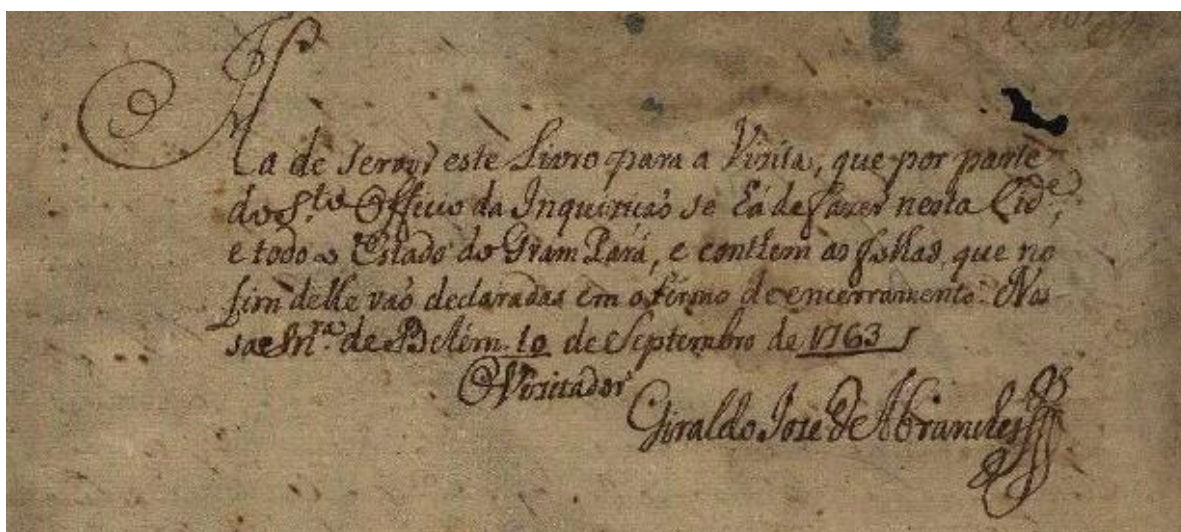 Ha de servir este Livro para a Vizita, que por parte
do S.to Officio da Inquiziçaõ se há de fazer nesta Cid.e,
e todo o Estado do Gram Pará, e conthem as folhas, que no
fim delle vaõ declaradas em o termo de encerramento. Nos
sa Sn.ra de Belém. 10 de Septembro de 1763
O Vizitador
Giraldo Joze de Abranches